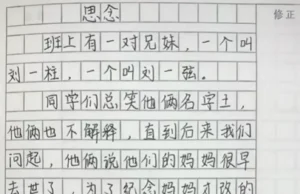 修正
思念
班上有一对兄妹，一个叫
刘一柱，一个叫刘一弦。
同学们总笑他俩名字土，
他俩也不解释，直到后来我们
问起，他俩说他们的妈妈很早
去世了，为了纪念妈妈才改的